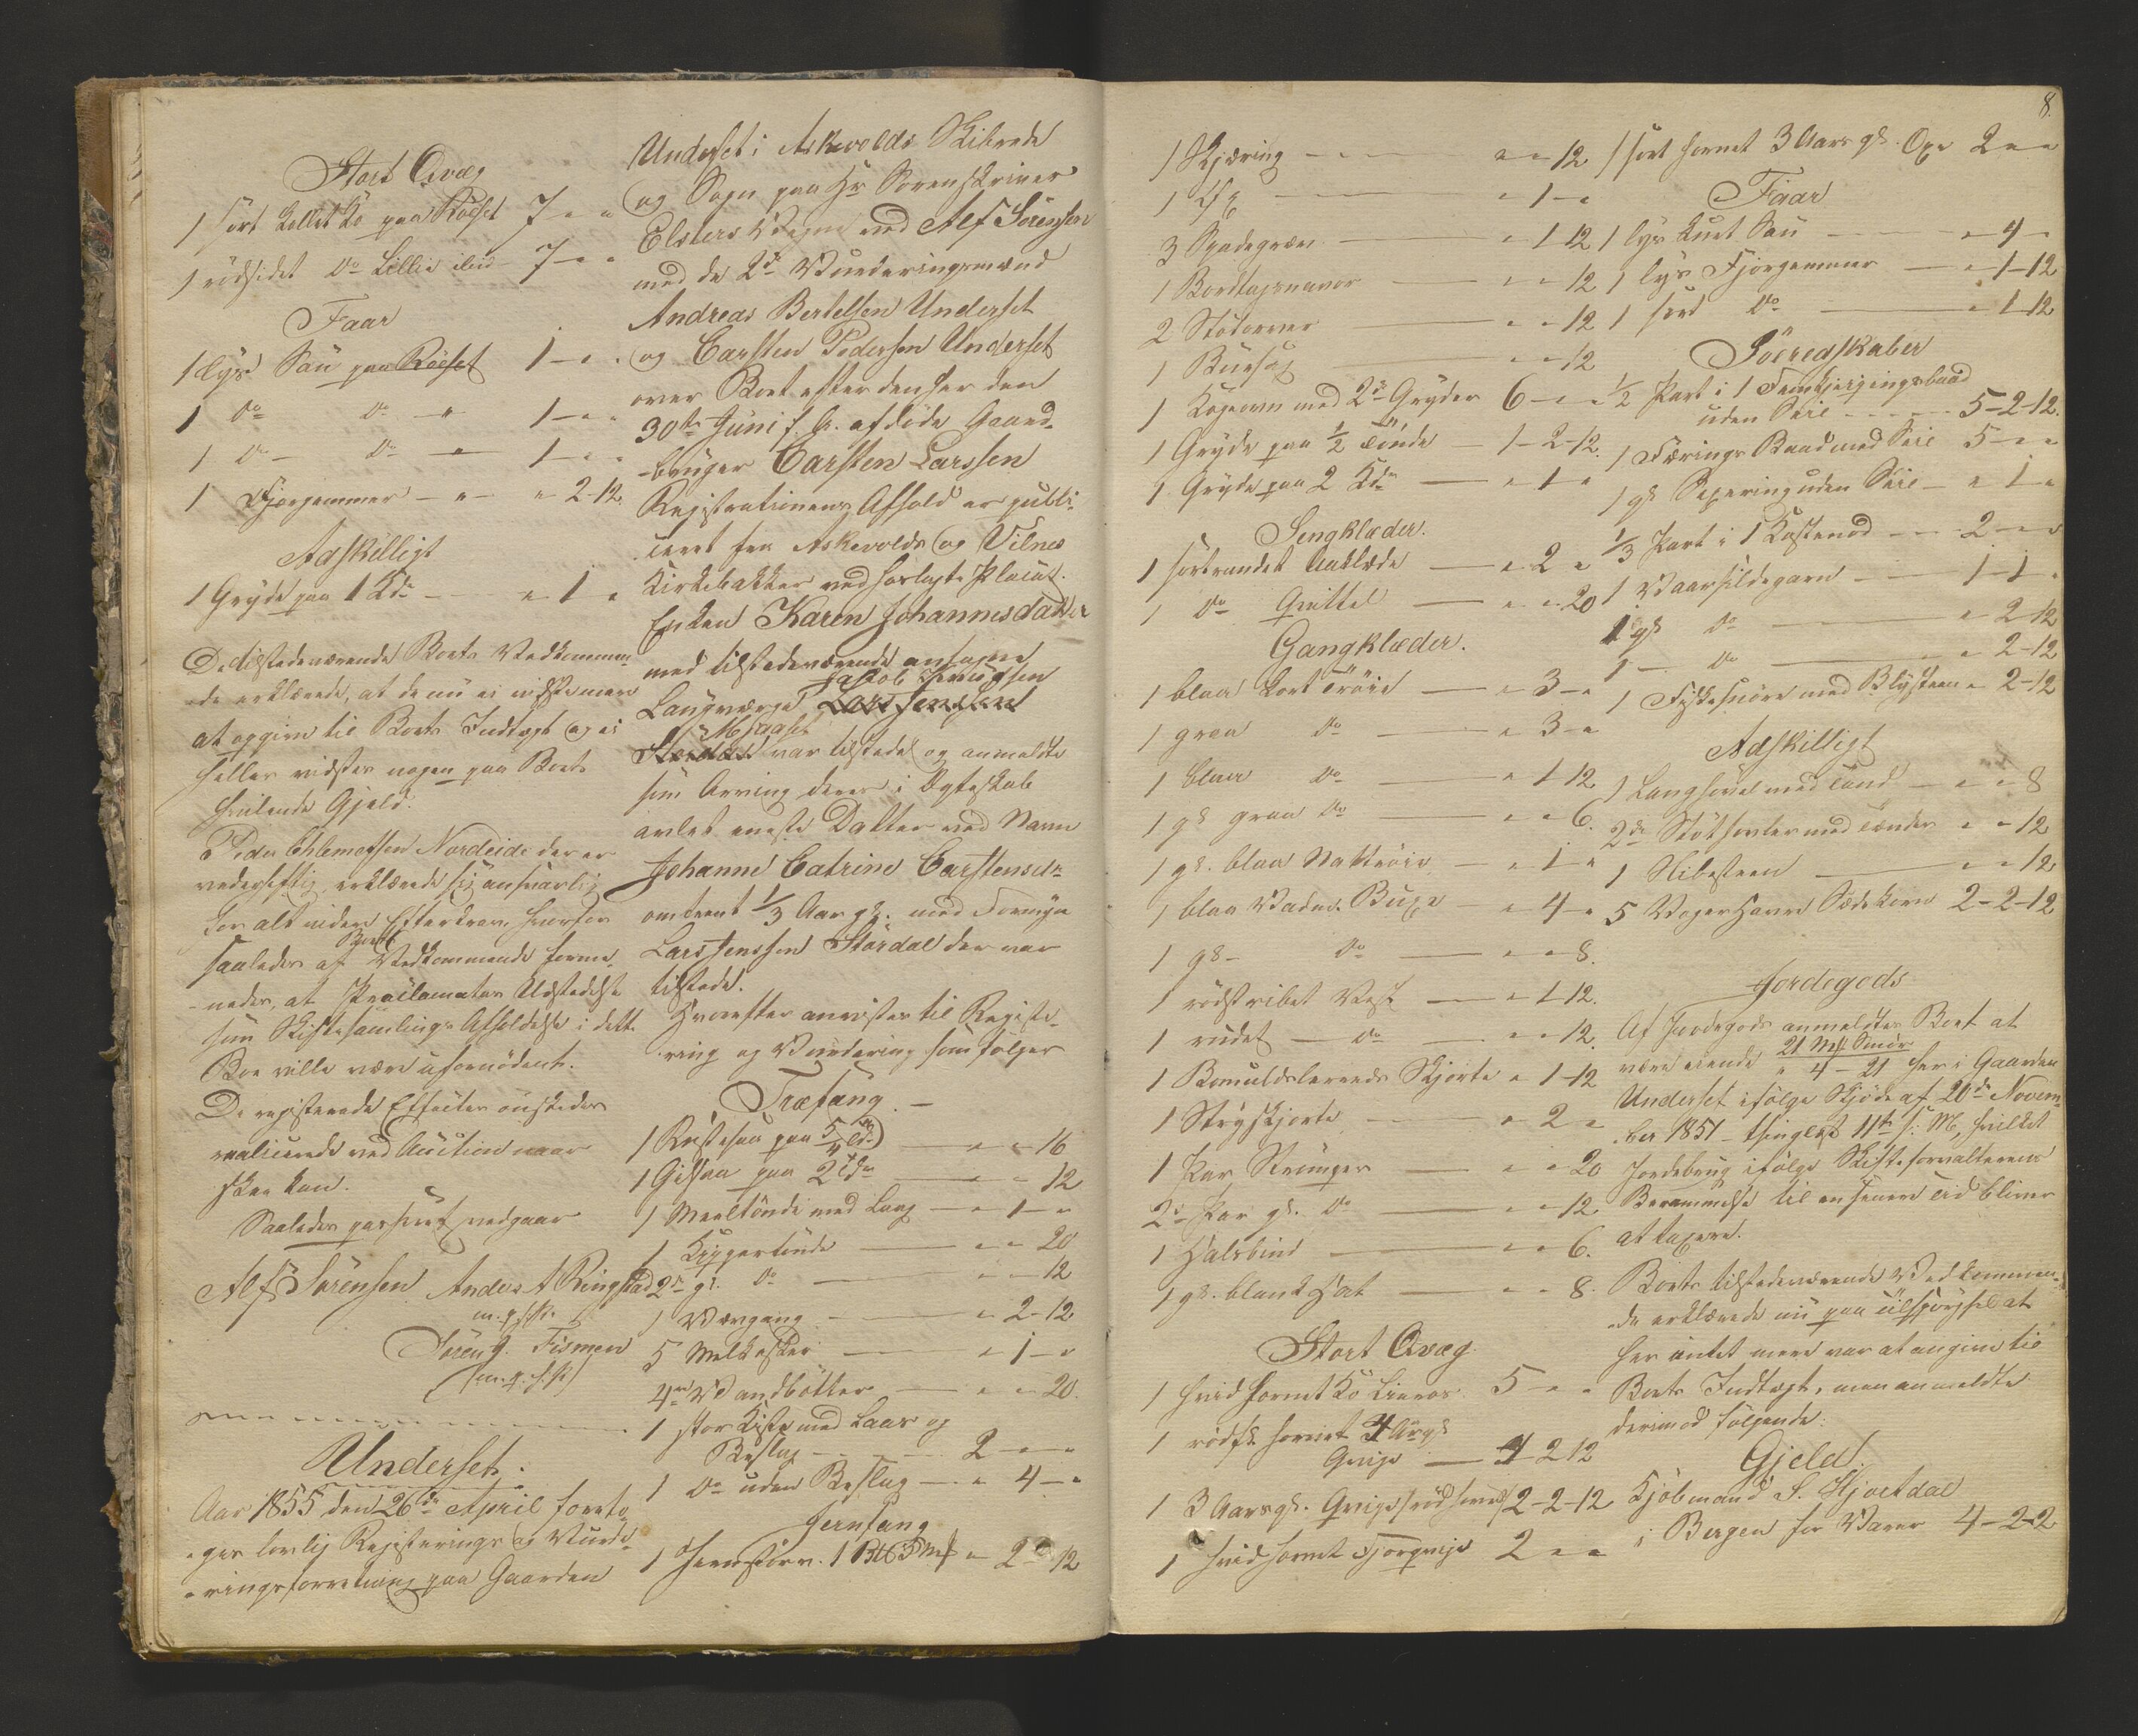 Stort Qvæg
1 sort kollet Ko paa Röeset 7 - " - "
1 rödsidet do Lillie ibid 7 - " - "
Faar
1 lys Sau paa Röeset 1 - " - "
1 do do - " 1 - " - "
1 do - do - " 1 - " - "
1 Fjorgemmer - " - " 2-12.
Adskilligt
1 Gryde paa 1 Kd - " 1 "
De tilstedeværende Boets Vedkommen-
de erklærede, at de nu ei vidste mere
at opgive til Boets Indtægt og ei
heller vidstes nogen paa Boet
hvilende Gjeld.
Peder Nordeide der er
vederheftig, erklærede sig ansvarlig
for alt videre Efterkrav, hvorfor
saaledes af Boets Vedkommende forme-
nedes, at Proclamates Udstedelse
som Skiftesamlings Afholdelse i dette
Boe ville være ufornödent.
De registerede Effecter önskedes
realicerede ved Auction naar
skee kan.
Saaledes passeret vedgaaer
Alf Sörensen Anders A Ringstad
m. p. P.
Sören J. Fismen
(m. p. P.)
Underset.
Aar 1855 den 26de April foreto-
ges lovlig Registerings og Vurde-
ringsforretning paa Gaarden
Underset i Askevolds Skibrede
og Sogn paa Hr Sorenskriver
Elsters Vegne ved Alf Sörensen
med de 2de Vurderingsmænd
Andreas Bertelsen Underset
og Carsten Pedersen Underset
over Boet efter den her den
30te Juni f. A. afdöde Gaard-
bruger Carsten Larssen
Registrationens Afhold er publi-
ceret fra Askevolds og Vilnes
Kirkebakker ved forlagte Placat.
Enken Karen Johannesdatter
med tilstedeværende antagne
Jacob
Laugværge Lars Jenssen
Stordal var tilstede og anmeldte
som Arving deres i Ægteskab
avlet eneste Datter ved Navn
Johanne Catrine Carstensdr
omtrent 1/3 Aar gl. med Formynder
Lars Jenssen Stördal der var
tilstede.
Hvorefter anvistes til Registe-
ring og Vurdering som fölger
Træfang. -
1 paa 5/4 Td - " - " 16
1 Gilsaa paa 2 Td - " - " 12
1 Meeltönde med Laag - " 1 - "
1 Kippertönde - " " 20
2de gl. do - " - " 12
1 - " 2-12
5 Melkasker - " 1 - "
4re Vandbötter - " " 20.
1 stor Kiste med Laas og
Beslag - 2 - " - "
1 do uden Beslag - " 4 - "
Jernfang
1 1 B℔ " 2 12
8.
1 Skjæring - " " 12
1 - " 1 - "
3 Spadegræv - " 1 12
1 Bordtagsnaver - " " 12
2 - " " 12
1 - " " 12
1 Kageovn med 2de Gryder 6 - " - "
1 Gryde paa 1/2 Tönde - 1-2-12.
1 Gryde paa 2 Kd - " 1 "
Sengklæder.
1 sortrandet Aaklæde - " 2 "
1 do Qvittel - " " 20
Gangklæder.
1 blaa kort Tröie - " 3 - "
1 graa do - " 3 - "
1 blaa do - " 1 12
1 gl graa do - " " 6.
1 gl. blaa Nattröie - " 1 - "
1 blaa Vadm. Buxe - " 4 - "
1 gl - do - " " 8.
1 rödstribet Vest - " 1 12.
1 rudet - do - " " 12.
1 Bomuldslerreds Skjorte " 1-12
1 Stryskjorte - " 2 "
1 Par Strömper - " " 20
2de Par gl. do - " " 12
1 Halsbind - " " 6.
1 gl. blank Hat - " " 8.
Stort Qvæg.
1 hvid hornet Ko Liinros 5 - " "
1 rödsk. hornet 4 Aarsgl
Qvige - 4 2 12
1 3 Aarsgl. Qvige rödhornet 2-2-12
1 hvid hornet Fjorqvige 2 " "
1 sort hornet 3 Aars gl. Oxe 2 " "
Faar
1 lys Sau - " 4 -
1 lys Fjorgemmer - " 1-12
1 sort do - " 1-12
Söeredskaber
1/2 Part i 1 Femkjeipingsbaad
uden Seil - 5-2-12.
1 Færings Baad med Seil 5 - " "
1 gl Sexæring uden Seil - " 1 - "
1/3 Part i 1 Kastenod - 2 - " "
1 Vaarsildegarn - 1-1 "
1 gl do - " 2-12
1 - do - " 2-12
1 Fiskesnöre med Blysteen " 2-12
Adskilligt
1 Langhovel med Tand - " " 8
2de Stöthovler med Tænder " " 12
1 Slibesteen - " " 12
5 Voger Havre Sædekorn 2-2-12
Jordegods
Af Jordegods anmeldtes Boet at
være eiende 21 Mk Smör " 4-21 her i Gaarden
Underset ifölge Skjöde af 20de Novem-
ber 1851 - thinglæst 11te s: M, hvilket
Jordebrug ifölge Skifteforvalterens
Berammelse til en senere Tid bliver
at taxere.
Boets tilstedeværende Vedkommen-
de erklærede nu paa Tilspörgsel at
her intet mere var at angive til
Boets Indtægt, men anmeldte
derimod fölgende:
Gjeld.
Kjöbmand S. Hjortdal
i Bergen for Varer 4-2-2